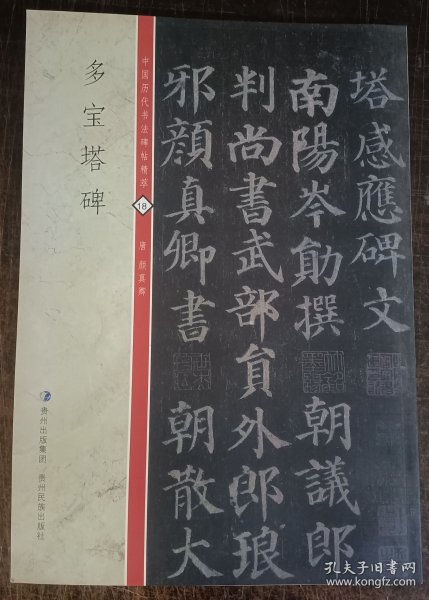 多宝塔碑
中国历代书法碑帖精萃
18
唐 颜真卿
贵州出版集团 贵州民族出版社
塔感應碑文
南陽岑勛撰 朝議郎
判尚書武部員外郎琅
邪顔真卿書 朝散大
孔夫子旧书网
www.kongfz.com